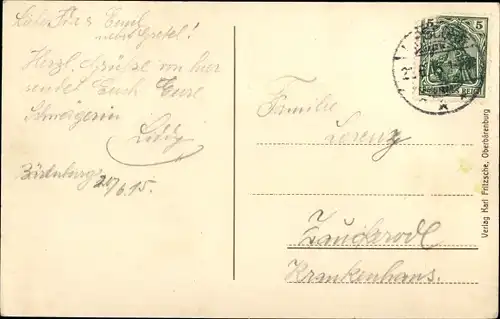 Liebe Fritz Emmel
nebst Gretel!
Herzl. Grüsse von hier
sendet Euch Eure
Schwägerin
Liddy
Bärenburg 20/6.15.
Familie
Lorenz
Zauckerode
Krankenhaus.
5
Verlag Karl Fritzsche, Oberbärenburg